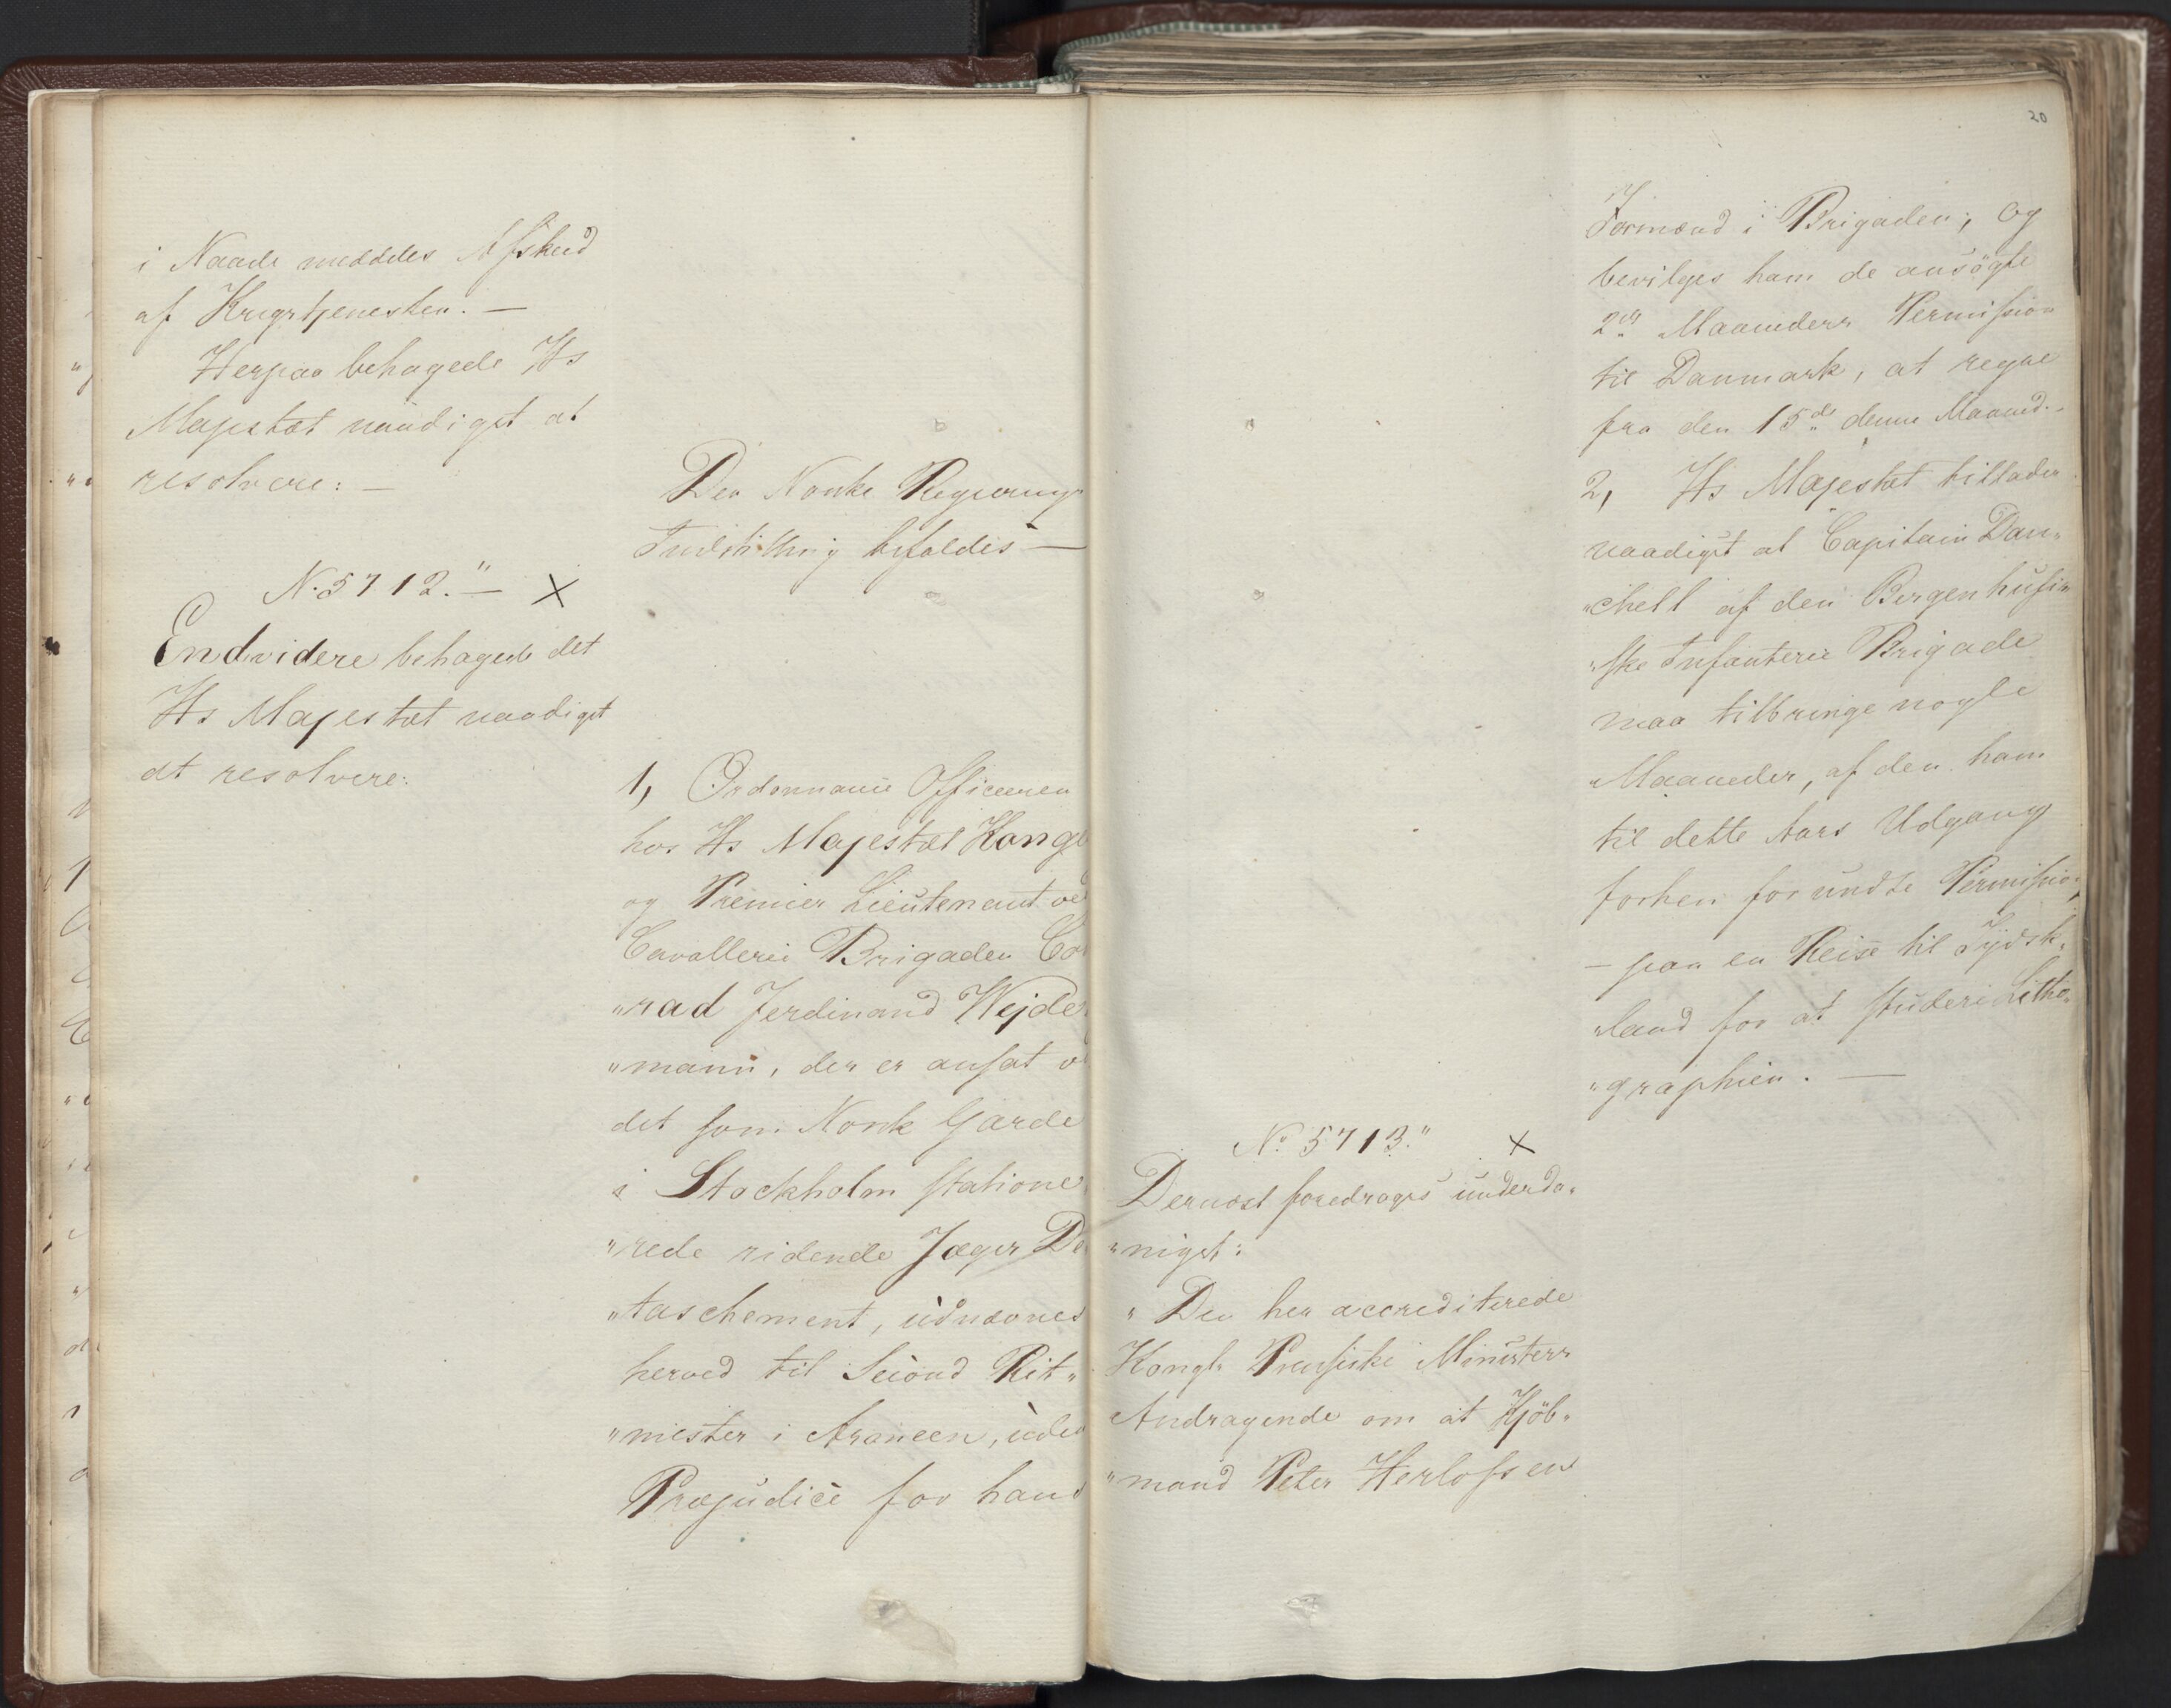 i Naade meddeles Afskeed
af Krigstjenesten. —
Herpaa behagede Hs
Majestæt naadigst at
resolvere: —
Den Norske Regjerings
Indstilling bifaldes —
N. 5712." — x
Endvidere behagede det
Hs Majestæt naadigst
at resolvere:
1, Ordonnance Officeren
hos Hs Majestæt Konge
og Premier Lieutenant ve
Cavallerie Brigaden Co
"rad Ferdinand Wejde
"mann, der er ansat v
det som Norsk Garde
i Stockholm statione
"rede ridende Jæger De
"taschement, udnævnes
herved til Second Rit"
"mester i Armeen, uden
Præjudice for hans
20
Formænd i Brigaden; og
bevilges ham de ansøgte
2de Maaneders Permission
til Danmark, at regne
fra den 15de denne Maaned. -
2, Hs Majestæt tillader
naadigst at Capitain Dan"
"chell af den Bergenhusi"
"ske Infanterie Brigade
maa tilbringe nogle
Maaneder, af den ham
til dette Aars Udgang
forhen forundte Permission,
— paa en Reise til Tydsk"
"land for at studere Litho"
"graphien. —
No 5713." x
Dernæst foredroges underda"
"nigst:
" Den her accrediterede
Kongl. Preusiske Ministers
Andragende om at Kjöb"
"mand Peter Herlofsen